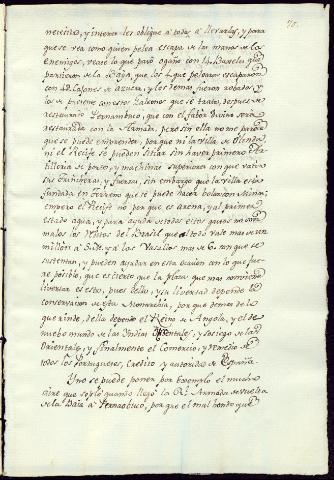 70.
necesitan, y interes les obligue a todos a llevarlas, y para
que se vea como quien pelea escapa de las manos de los
Enemigos, vease lo que pasó ogaño con 14. Buxelu que
partieron de la Baya, que los 4 que pelearon escaparon
con 42. Caxones de azucar, y los demas fueron robados, y
si se hiciesse con estos Galeones que se trata, despues de
restaurado Pernambuco, que con el fabor Divino será
restaurada con la Armada, pero sin ella no me parece
que se puede emprender, porque ni la Villa de Olinda
ni el Recife se pueden sitiar sin haver primero Ar-
tilleria de porte, y machinas superiores con que batir
sus trincheras, y fuerzas, sin embargo que la Villa está
fundada en terreno que se puede hacer bolar con Mina:
empero el Recife no porque es arena, y al primer
estado agua, y para ayuda de todos estos gastos no son
malos los Vintos del Brasil que al todo vale mas de un
millon a Su Mde. y a los Vasallos mas de 6. con que se
sustentan, y pueden ayudar en esta ocasion con lo que fue-
ne posible, que es cierto que la plaza que mas conviene
livertar es esto, pues della, y su livertad depende la
conservacion de esta Monarchia, porque demas de lo
que rinde, della depende el Reino de Angola, y el de
nuebo mundo de las Indias Occidentales, y sosiego de las
Orientales, y finalmente el Comercio, y remedio de
todos los Portugueses, Credito y autoridad de España.
Uno se puede poner por Exemplo el mucho
aire que sopló quando llegó la Rl. Armada de vuelta
de la Baia a Pernambuco, porque el mal hondo que